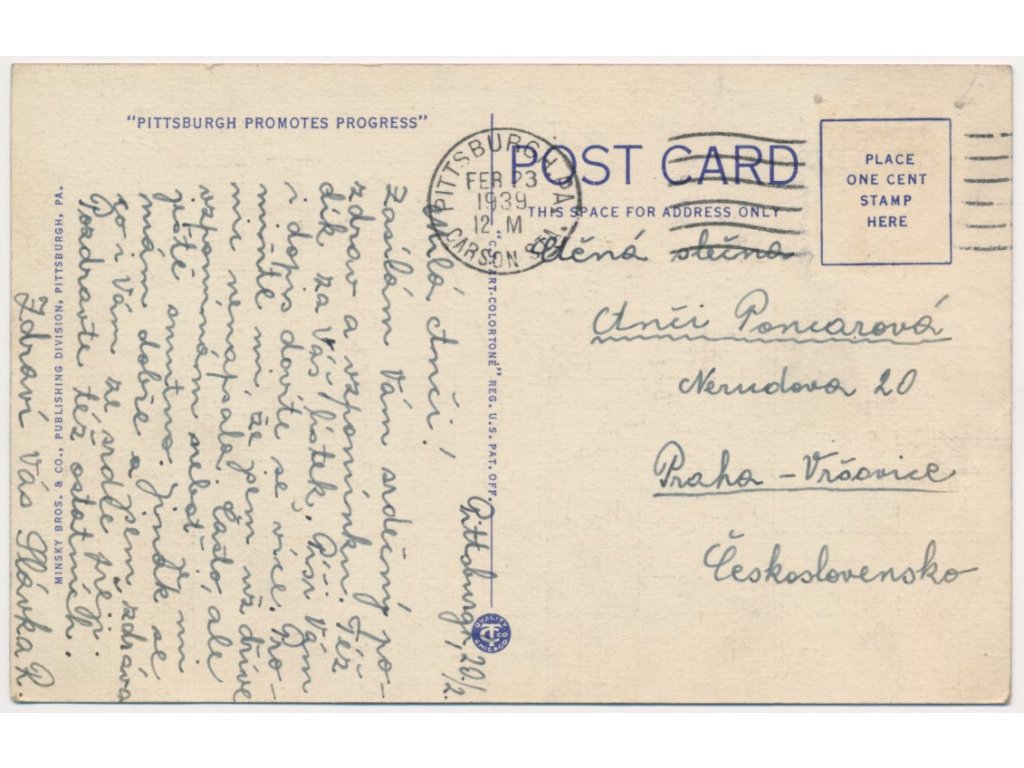 "PITTSBURGH PROMOTES PROGRESS"
POST CARD
THIS SPACE FOR ADDRESS ONLY
PLACE
ONE CENT
STAMP
HERE
PITTSBURGH PA.
FEB 23
1939
12 M
CARSON STA.
Ctěná slečna
Anči Poncarová
Nerudova 20
Praha - Vršovice
Československo
Pittsburgh, 20/2.
Milá Anči!
Zasílám Vám srdečný po-
zdrav a vzpomínku. Též
dík za Váš lístek. Píši Vám
i dopis dovíte se více. Pro-
miňte mi, že jsem už dříve
nenapsala. Často ale
vzpomínám neboť mi
ještě smutno. Jinak se
mám dobře a jsem zdráva
co i Vám ze srdce přeji.
Pozdravte též ostatních.
Zdraví Vás Slávka R.
MINSKY BROS. & CO., PUBLISHING DIVISION, PITTSBURGH, PA.
ART-COLORTONE" REG. U.S. PAT. OFF.
QUALITY
CT CO
CHICAGO